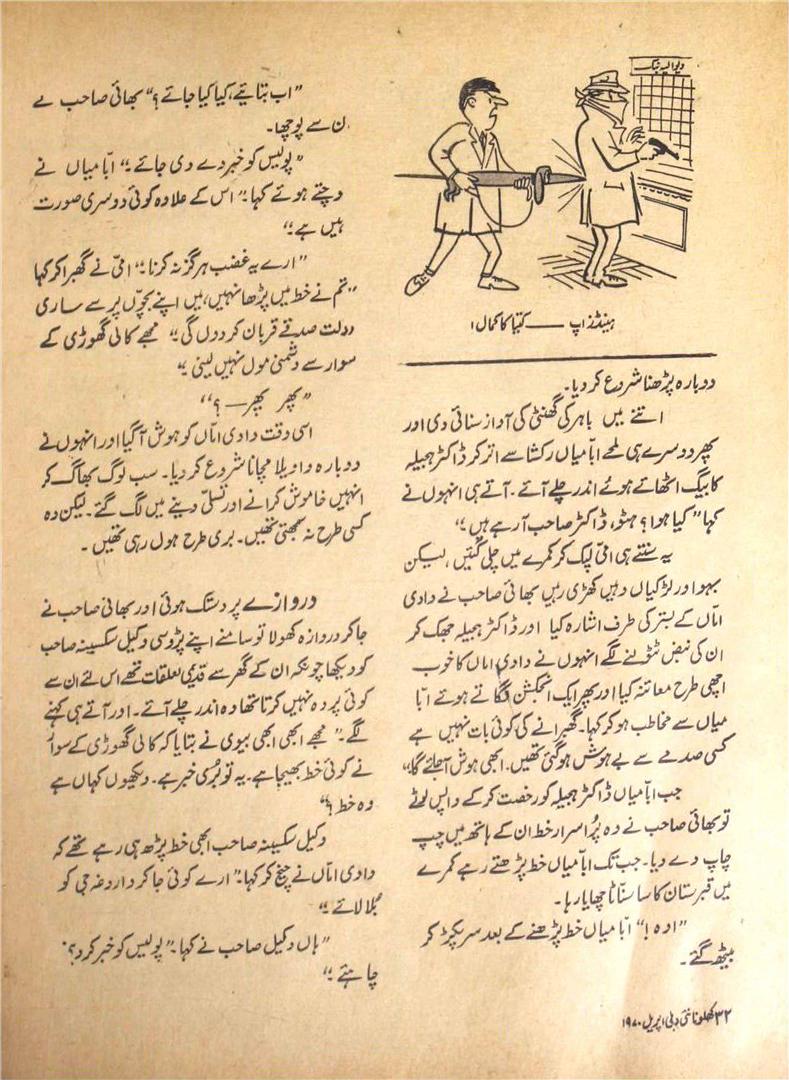 دیوالیہ بنک
ہینڈز اپ —— کتیا کا کمال!
دوبارہ پڑھنا شروع کر دیا۔
اتنے میں باہر کی گھنٹی کی آواز سنائی دی اور
پھر دوسرے ہی لمحے ابّا میاں رکشا سے اتر کر ڈاکٹر جمیلہ
کا بیگ اٹھائے ہوئے اندر چلے آئے۔ آتے ہی انہوں نے
کہا ”کیا ہوا؟ ہٹو، ڈاکٹر صاحب آ رہے ہیں۔“
یہ سنتے ہی امّی لپک کر کمرے میں چلی گئیں، لیکن
بہو اور لڑکیاں وہیں کھڑی رہیں بھائی صاحب نے دادی
امّاں کے بستر کی طرف اشارہ کیا اور ڈاکٹر جمیلہ جھک کر
ان کی نبض ٹٹولنے لگے انہوں نے دادی اماں کا خوب
اچھی طرح معائنہ کیا اور پھر ایک انجکشن لگاتے ہوئے ابّا
میاں سے مخاطب ہو کر کہا۔ گھبرانے کی کوئی بات نہیں ہے
کسی صدمے سے بے ہوش ہو گئی تھیں۔ ابھی ہوش آ جائے گا“
جب ابّا میاں ڈاکٹر جمیلہ کو رخصت کر کے واپس لوٹے
تو بھائی صاحب نے وہ پُراسرار خط ان کے ہاتھ میں چپ
چاپ دے دیا۔ جب تک ابّا میاں خط پڑھتے رہے کمرے
میں قبرستان کا سا سنّاٹا چھایا رہا۔
”اوہ!“ ابّا میاں خط پڑھنے کے بعد سر پکڑ کر
بیٹھ گئے۔
”اب بتائیے، کیا کیا جائے؟“ بھائی صاحب نے
ن سے پوچھا۔
”پولیس کو خبر دے دی جائے۔“ ابّا میاں نے
وچتے ہوئے کہا۔ ”اس کے علاوہ کوئی دوسری صورت
ہیں ہے۔“
”ارے یہ غضب ہرگز نہ کرنا۔“ امّی نے گھبرا کر کہا
”تم نے خط میں پڑھا نہیں، میں اپنے بچوں پر سے ساری
دولت صدقے قربان کر دوں گی۔“ مجھے کالی گھوڑی کے
سوار سے دشمنی مول نہیں لینی۔“
”پھر پھر—؟“
اسی وقت دادی امّاں کو ہوش آ گیا اور انہوں نے
دوبارہ واویلا مچانا شروع کر دیا۔ سب لوگ بھاگ کر
انہیں خاموش کرانے اور تسلّی دینے میں لگ گئے۔ لیکن وہ
کسی طرح نہ سمجھتی تھیں۔ بری طرح ہول رہی تھیں۔
دروازے پر دستک ہوئی اور بھائی صاحب نے
جا کر دروازہ کھولا تو سامنے اپنے پڑوسی وکیل سکسینہ صاحب
کو دیکھا چونکہ ان کے گھر سے قدیمی تعلقات تھے اس لئے ان سے
کوئی پردہ نہیں کرتا تھا وہ اندر چلے آئے۔ اور آتے ہی کہنے
لگے۔ ”مجھے ابھی ابھی بیوی نے بتایا کہ کالی گھوڑی کے سوار
نے کوئی خط بھیجا ہے۔ یہ تو بُری خبر ہے۔ دیکھوں کہاں ہے
وہ خط؟“
وکیل سکسینہ صاحب ابھی خط پڑھ ہی رہے تھے کہ
دادی امّاں نے چیخ کر کہا۔ ”ارے کوئی جا کر داروغہ جی کو
بُلا لائے۔“
”ہاں وکیل صاحب نے کہا۔ ”پولیس کو خبر کر د؟
چاہئے۔“
۳۲ کھلونا نئی دہلی اپریل ۱۹۷۰